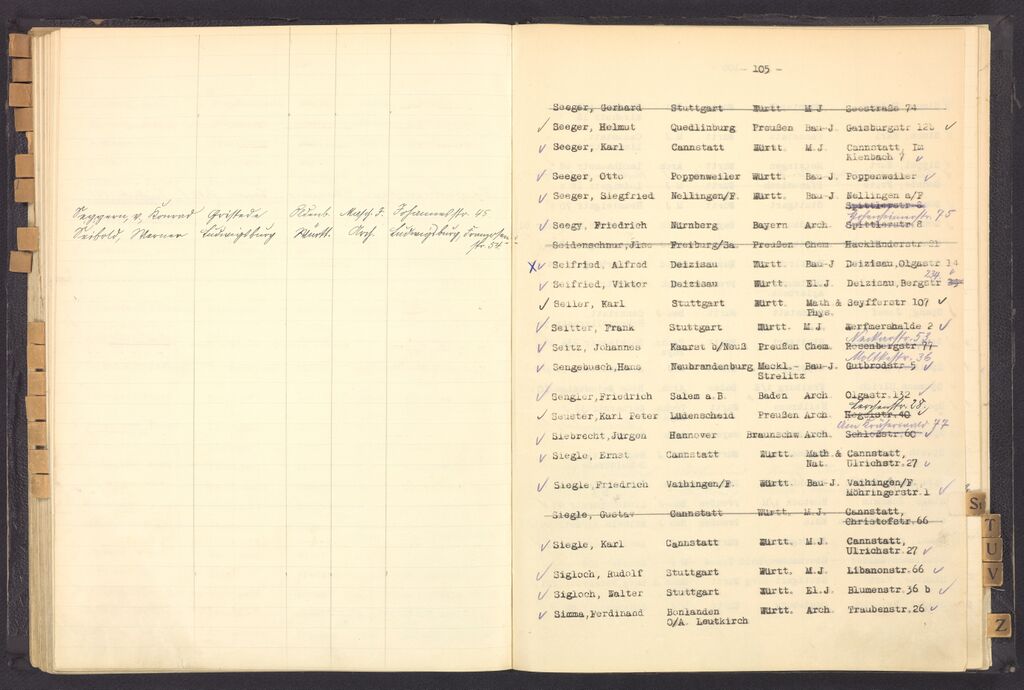 Seggern, v. Konrad Gristede Oldenb. Masch. J. Johannesstr. 45
Seibold, Werner Ludwigsburg Württ. Arch. Ludwigsburg,
str. 54
- 105 -
Seeger, Gerhard Stuttgart Württ. M J Seestraße 74
Seeger, Helmut Quedlinburg Preußen Bau-J Gaisburgstr 12b
Seeger, Karl Cannstatt Württ. M.J. Cannstatt, Im
Kienbach 7
Seeger, Otto Poppenweiler Württ. Bau-J Poppenweiler
Seeger, Siegfried Nellingen/F. Württ. Bau-J. Nellingen a/F
Spittlerstr 8
Hohenheimerstr. 75
Seegy, Friedrich Nürnberg Bayern Arch. Spittlerstr 8
Seidenschnur, Ilse Freiburg/Sa. Preußen Chem Hackländerstr 21
Seifried, Alfred Deizisau Württ. Bau-J Deizisau, Olgastr 14
234
Seifried, Viktor Deizisau Württ. El.J. Deizisau, Bergstr
Seiler, Karl Stuttgart Württ. Math & Seyfferstr 107
Phys.
Seitter, Frank Stuttgart Württ. M.J. Werfmershalde 2
Neckarstr. 52
Seitz, Johannes Kaarst b/Neuß Preußen Chem. Rosenbergstr 77
Moltkestr. 36
Sengebusch, Hans Neubrandenburg Meckl.- Bau-J. Gutbrodstr 5
Strelitz
Sengler, Friedrich Salem a.B. Baden Arch. Olgastr. 132
Lerchenstr. 28.
Seuster, Karl Peter Lüdenscheid Preußen Arch. Hegelstr. 40
Am Kräherwald 77
Siebrecht, Jürgen Hannover Braunschw. Arch. Schloßstr. 60
Siegle, Ernst Cannstatt Württ. Math & Cannstatt,
Nat. Ulrichstr. 27
Siegle, Friedrich Vaihingen/F. Württ. Bau-J. Vaihingen/F
Möhringerstr. 1
Siegle, Gustav Cannstatt Württ. M.J. Cannstatt,
Christofstr. 66
Siegle, Karl Cannstatt Württ. M.J. Cannstatt,
Ulrichstr. 27
Sigloch, Rudolf Stuttgart Württ. M.J. Libanonstr. 66
Sigloch, Walter Stuttgart Württ. El.J. Blumenstr. 36 b
Simma, Ferdinand Bonlanden Württ. Arch. Traubenstr. 26
O/A. Leutkirch
T
U
V
Z